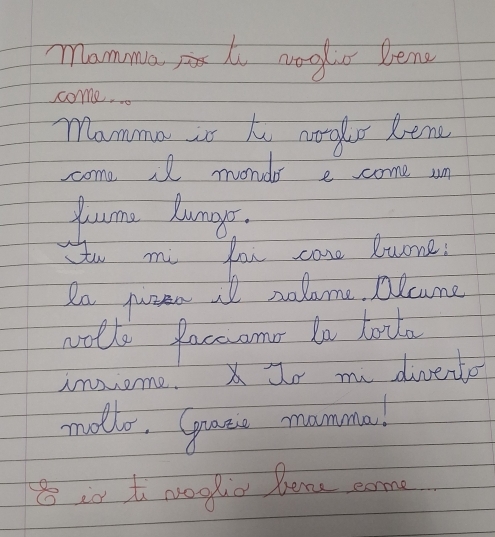 Mamma ti voglio bene
come...
Mamma io ti voglio bene
come il mondo e come un
fiume lungo.
Tu mi fai cose buone:
la pizza il salame. Alcune
volte facciamo la torta
insieme. Io mi diverto
molto. Grazie mamma!
E io ti voglio bene come...